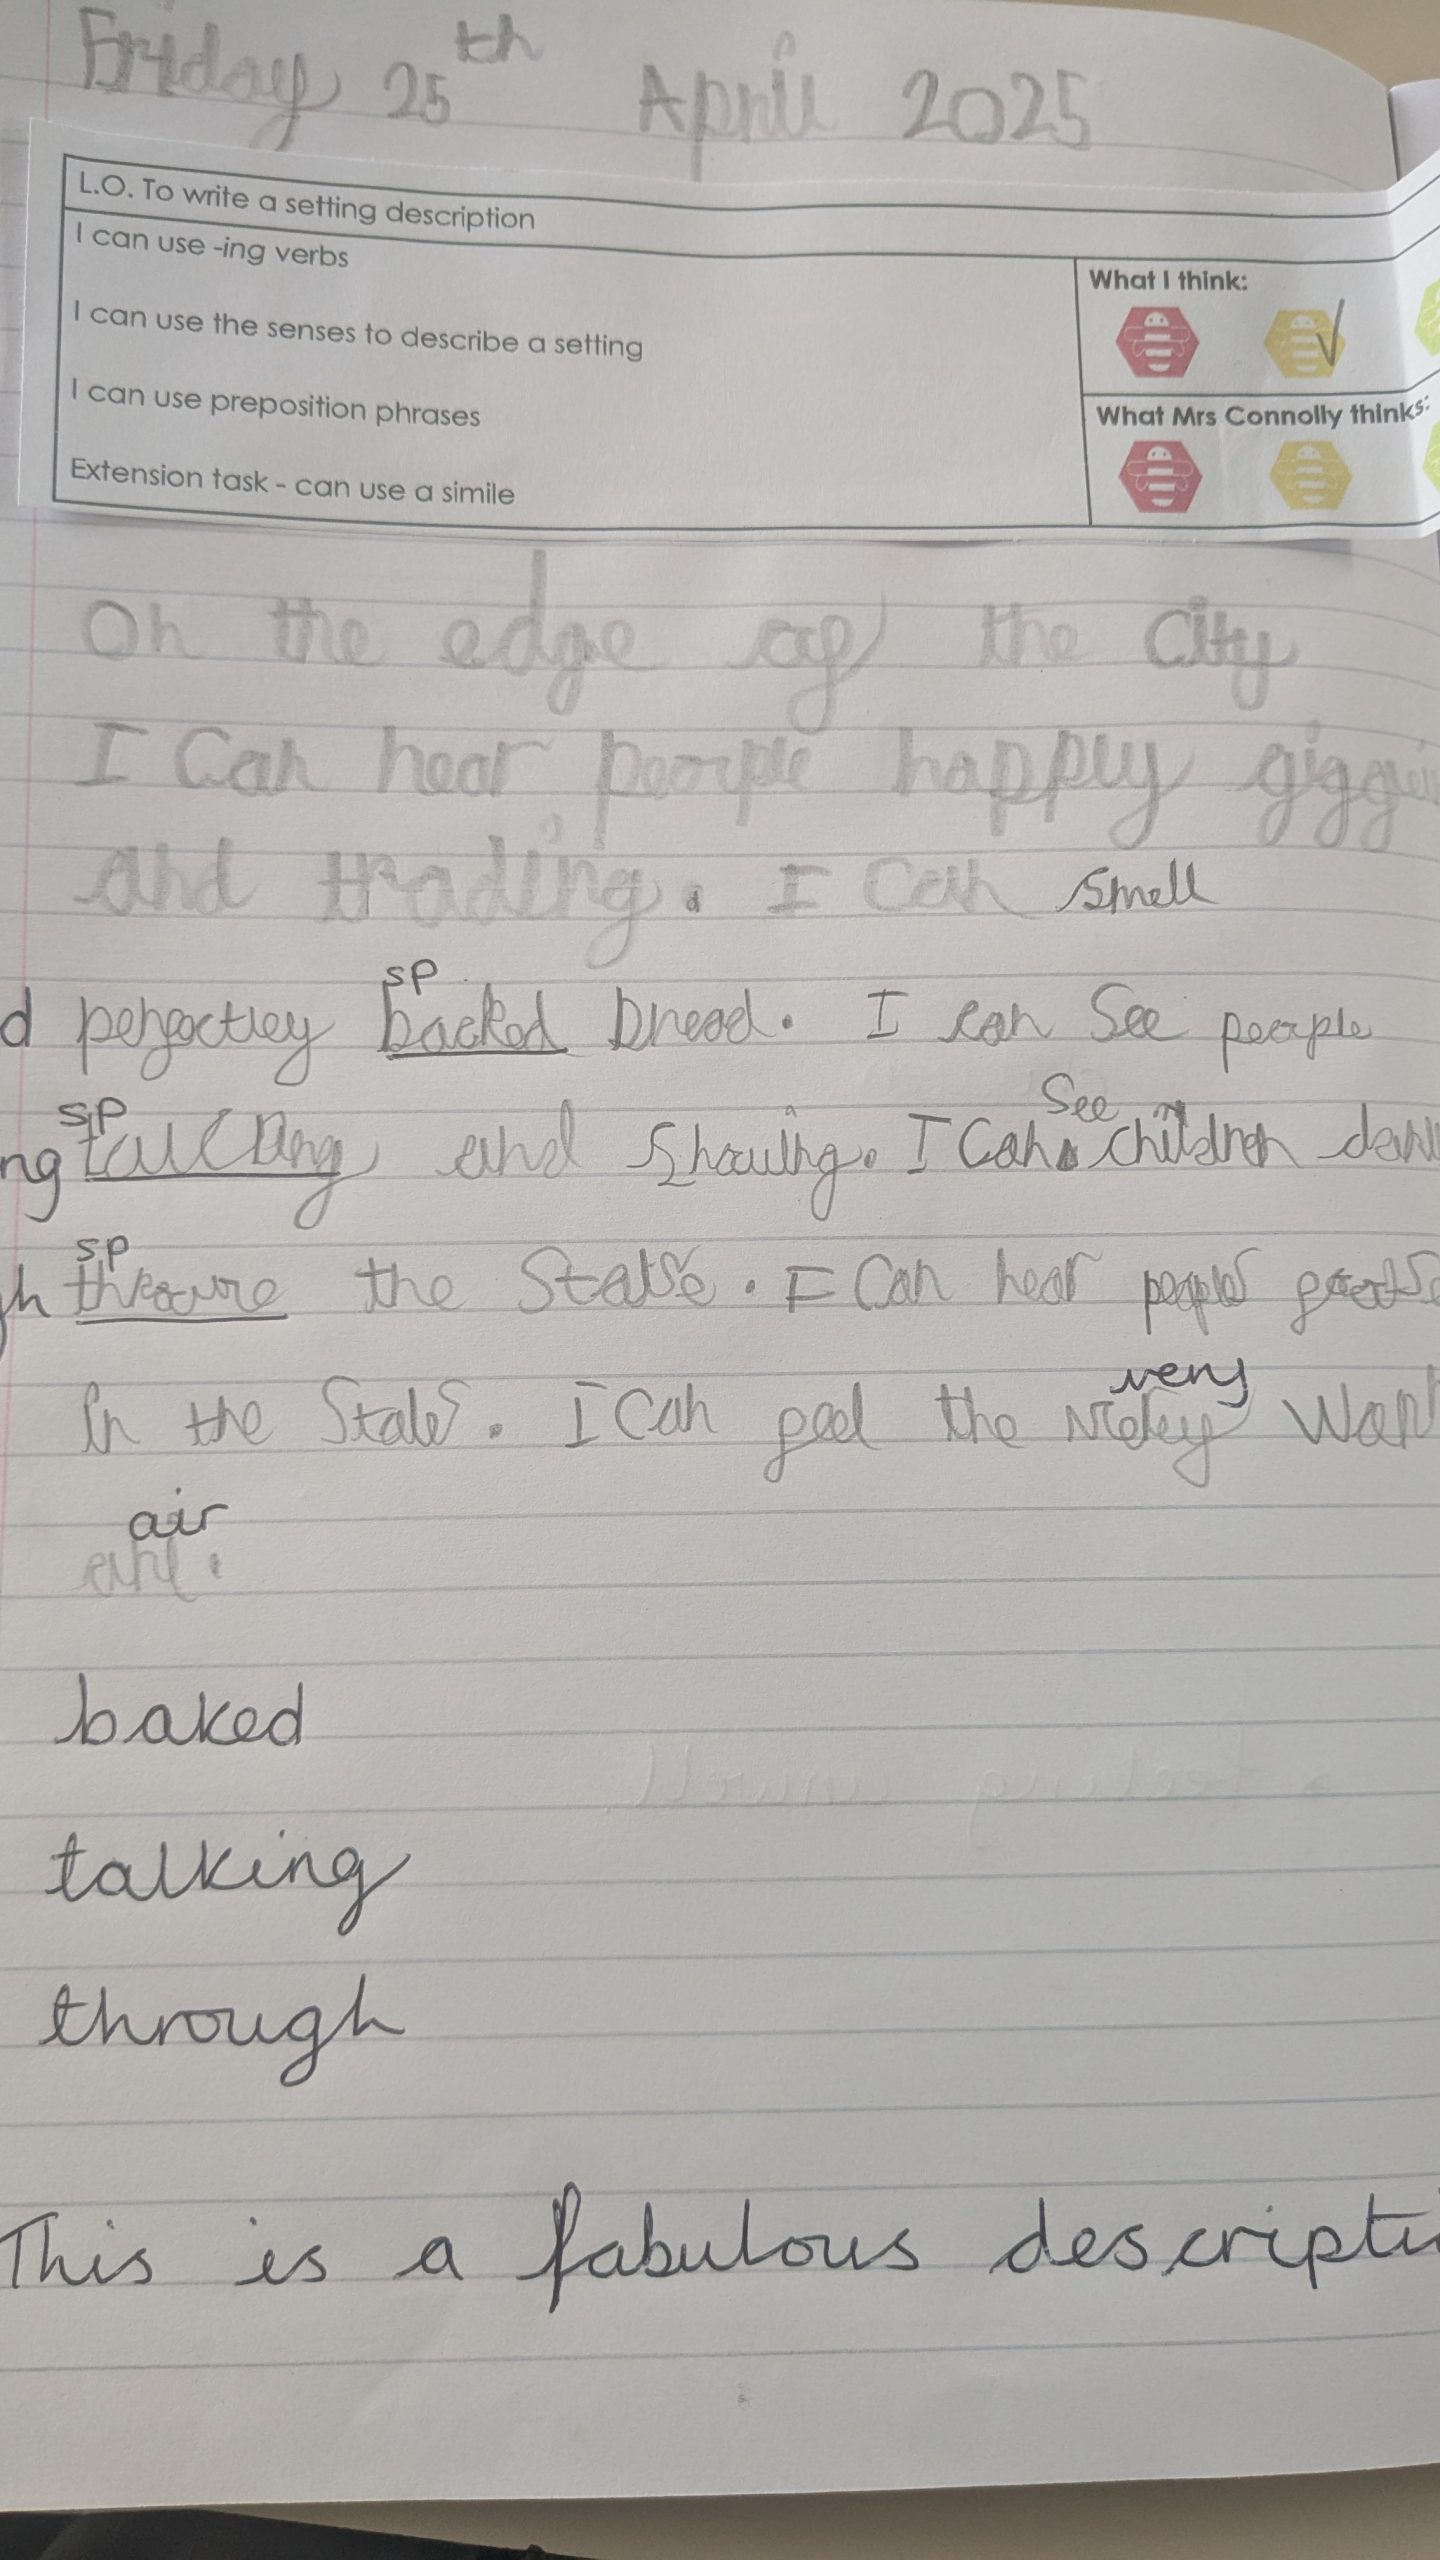 Friday 25th April 2025
L.O. To write a setting description
I can use -ing verbs
What I think:
I can use the senses to describe a setting
I can use preposition phrases
What Mrs Connolly thinks:
Extension task - can use a simile
On the edge of the City
I Can hear people happly
and trading. I Can smell
d perfectley backed bread. I can See people
sp
ng talcking and showing. I Can See children
sp
h throure the Stalse. I Can hear people
sp
in the Stals. I Can feel the very
air
baked
talking
through
This is a fabulous descripti